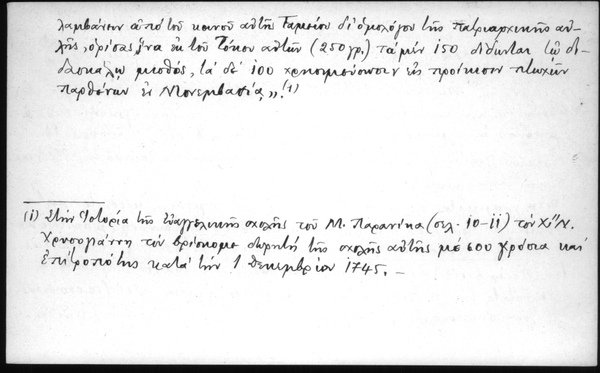 λαμβάνειν ἀπὸ τοῦ κοινοῦ αὐτῆς Ταμείου δι' ὁμολόγου τῆς πατριαρχικῆς αὐ-
λῆς, ὁρίσας, ἵνα ἐκ τοῦ Τόκου αὐτῶν (250 γρ.) τὰ μὲν 150 δίδωνται τῷ δι-
δασκάλῳ μισθός, τὰ δὲ 100 χρησιμεύωσιν εἰς προίκισιν πτωχῶν
παρθένων ἐν Μονεμβασίᾳ,,.(1)
(1) Στὴν Ἱστορία τῆς Εὐαγγελικῆς σχολῆς τοῦ Μ. Παρανίκα (σελ. 10-11) τὸν Χ΄΄Ν.
Χρυσογιάννη τὸν βρίσκομε δωρητὴ τῆς σχολῆς αὐτῆς μὲ 600 γρόσια καὶ
ἐπίτροπό της κατὰ τὴν 1 Δεκεμβρίου 1745. –